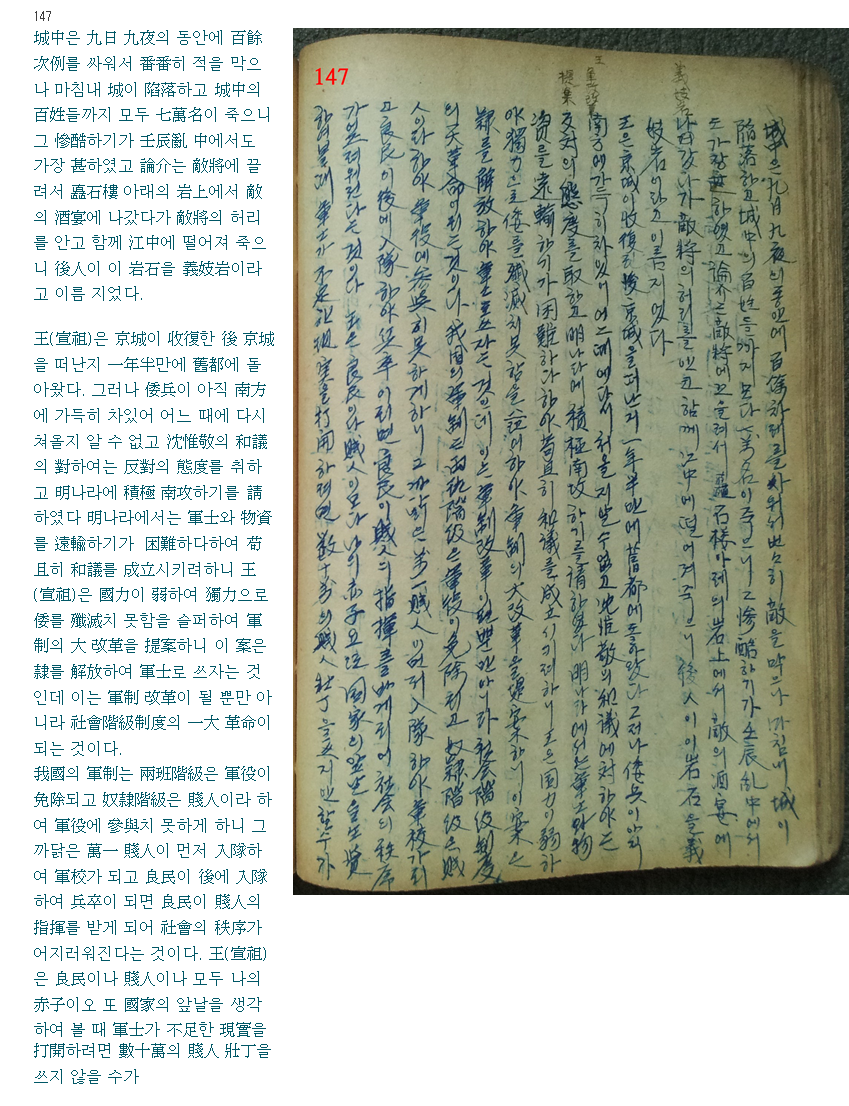 147
城中은 九日 九夜의 동안에 百餘
次例를 싸워서 番番히 적을 막으
나 마침내 城이 陷落하고 城中의
百姓들까지 모두 七萬名이 죽으니
그 慘酷하기가 壬辰亂 中에서도
가장 甚하였고 論介는 敵將에 끌
려서 矗石樓 아래의 岩上에서 敵
의 酒宴에 나갔다가 敵將의 허리
를 안고 함께 江中에 떨어져 죽으
니 後人이 이 岩石을 義妓岩이라
고 이름 지었다.
王(宣祖)은 京城이 收復한 後 京城
을 떠난지 一年半만에 舊都에 돌
아왔다. 그러나 倭兵이 아직 南方
에 가득히 차있어 어느 때에 다시
쳐올지 알 수 없고 沈惟敬의 和議
의 對하여는 反對의 態度를 취하
고 명나라에 積極 南攻하기를 請
하였다 明나라에서는 軍士와 物資
를 遠輸하기가 困難하다하여 苟
且히 和議를 成立시키려하니 王
(宣祖)은 國力이 弱하여 獨力으로
倭를 殲滅치 못함을 슬퍼하여 軍
制의 大 改革을 提案하니 이 案은
隷를 解放하여 軍士로 쓰자는 것
인데 이는 軍制 改革이 될 뿐만 아
니라 社會階級制度의 一大 革命이
되는 것이다.
我國의 軍制는 兩班階級은 軍役이
免除되고 奴隷階級은 賤人이라 하
여 軍役에 參與치 못하게 하니 그
까닭은 萬一 賤人이 먼저 入隊하
여 軍校가 되고 良民이 後에 入隊
하여 兵卒이 되면 良民이 賤人의
指揮를 받게 되어 社會의 秩序가
어지러워진다는 것이다. 王(宣祖)
은 良民이나 賤人이나 모두 나의
赤子이오 또 國家의 앞날을 생각
하여 볼 때 軍士가 不足한 現實을
打開하려면 數十萬의 賤人 壯丁을
쓰지 않을 수가
147
義妓岩
城中은 九日 九夜의 동안에 百餘차레를 싸워서 번번히 敵을 막으나 마침내 城이
陷落하고 城中의 百姓들까지 모다 七萬名이 죽으니 그 慘酷하기가 壬辰乱 中에서
도 가장 甚하였고 論介는 敵將에 끄을려서 矗石楼 아레의 岩上에서 敵의 酒宴에
나갔다가 敵將의 허리를 안고 함께 江中에 떨어져 죽으니 後人이 이 岩石을 義
妓岩이라고 이름 지었다
王은 京城이 收復한 後 京城을 떠난지 一年半만에 舊都에 도라왔다 그러나 倭兵이 아직
南方에 가득히 차있어 어느 때에 다시 처올지 알 수 없고 沈惟敬의 和議에 対하야는
反対의 態度를 取하고 明나라에 積極 南攻하기를 請하였다 明나라에서는 軍士와 物
資를 遠輸하기가 困難하다하야 苟且히 和議를 成立시키려하니 王은 国力이 弱하
야 獨力으로 倭를 殲滅치 못함을 슬퍼하야 軍制의 大改革을 提案하니 이 案은
隷를 解放하야 軍士로 쓰자는 것인데 이는 軍制改革이 될 뿐만 아니라 社会階級制度
의 一大革命이 되는 것이다 我国의 軍制는 両班階級은 軍役이 免除되고 奴隷階級은 賤
人이라 하야 軍役에 參與치 못하게 하니 그 까닭은 萬一 賤人이 먼저 入隊하야 軍校가 되
고 良民이 後에 入隊하야 兵卒이 되면 良民이 賤人의 指揮를 받게 되어 社会의 秩序
가 어지러워진다는 것이다 王은 良民이나 賤人이나 모다 나의 赤子이요 또 國家의 앞날을 생각
하여 볼 때 軍士가 不足한 現實을 打開하려면 數十萬의 賤人 壯丁을 쓰지 않을 수가